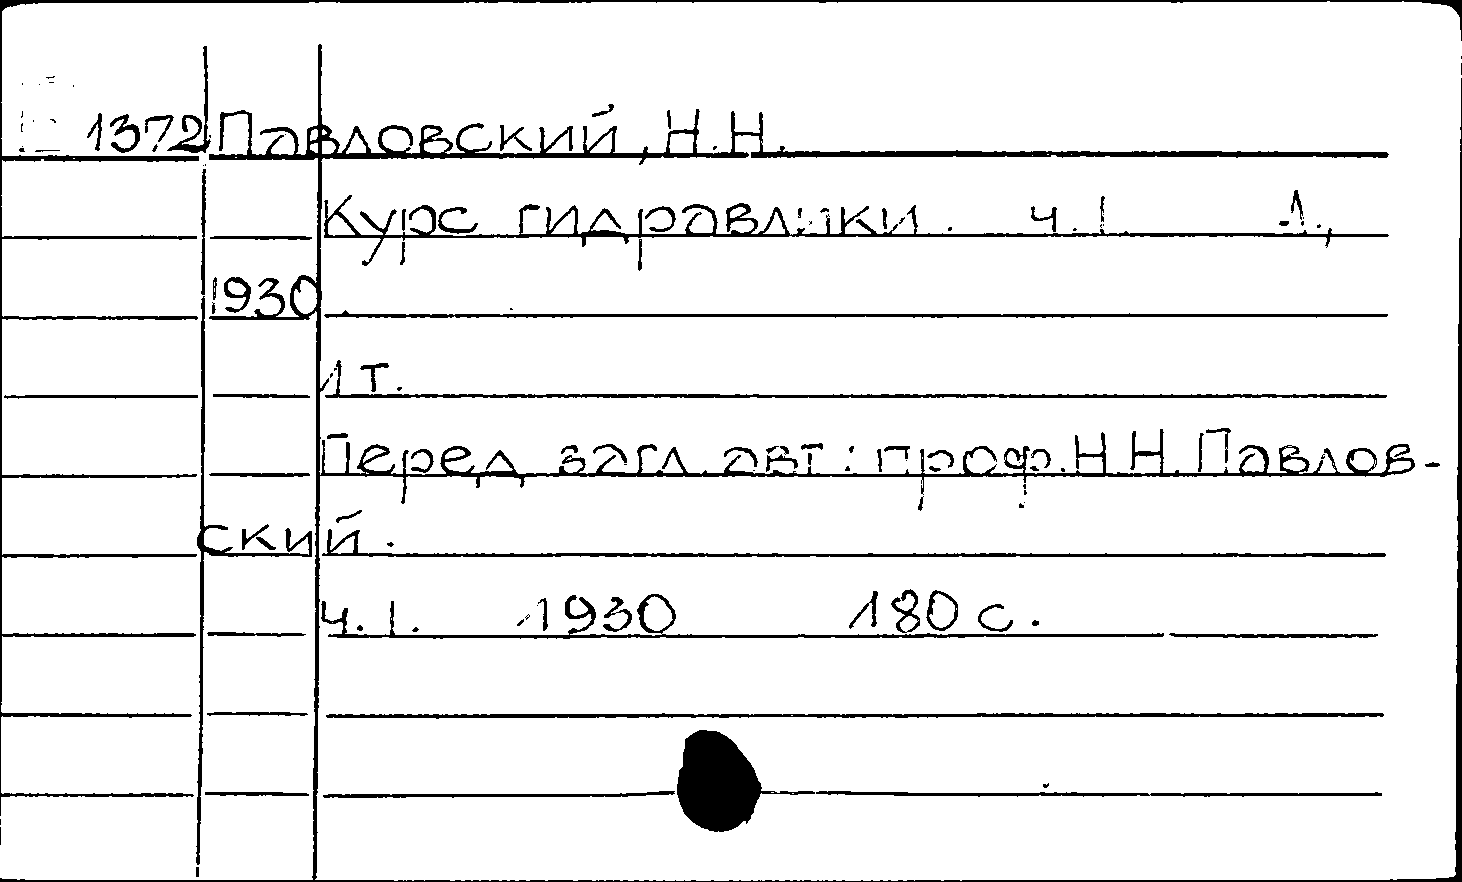 1372 Павловский, Н.Н.
Курс гидравлики. ч.I. 1.,
1930.
1 т.
Перед загл. авт.: проф. Н.Н. Павлов-
ский.
ч. I. 1930 180 с.